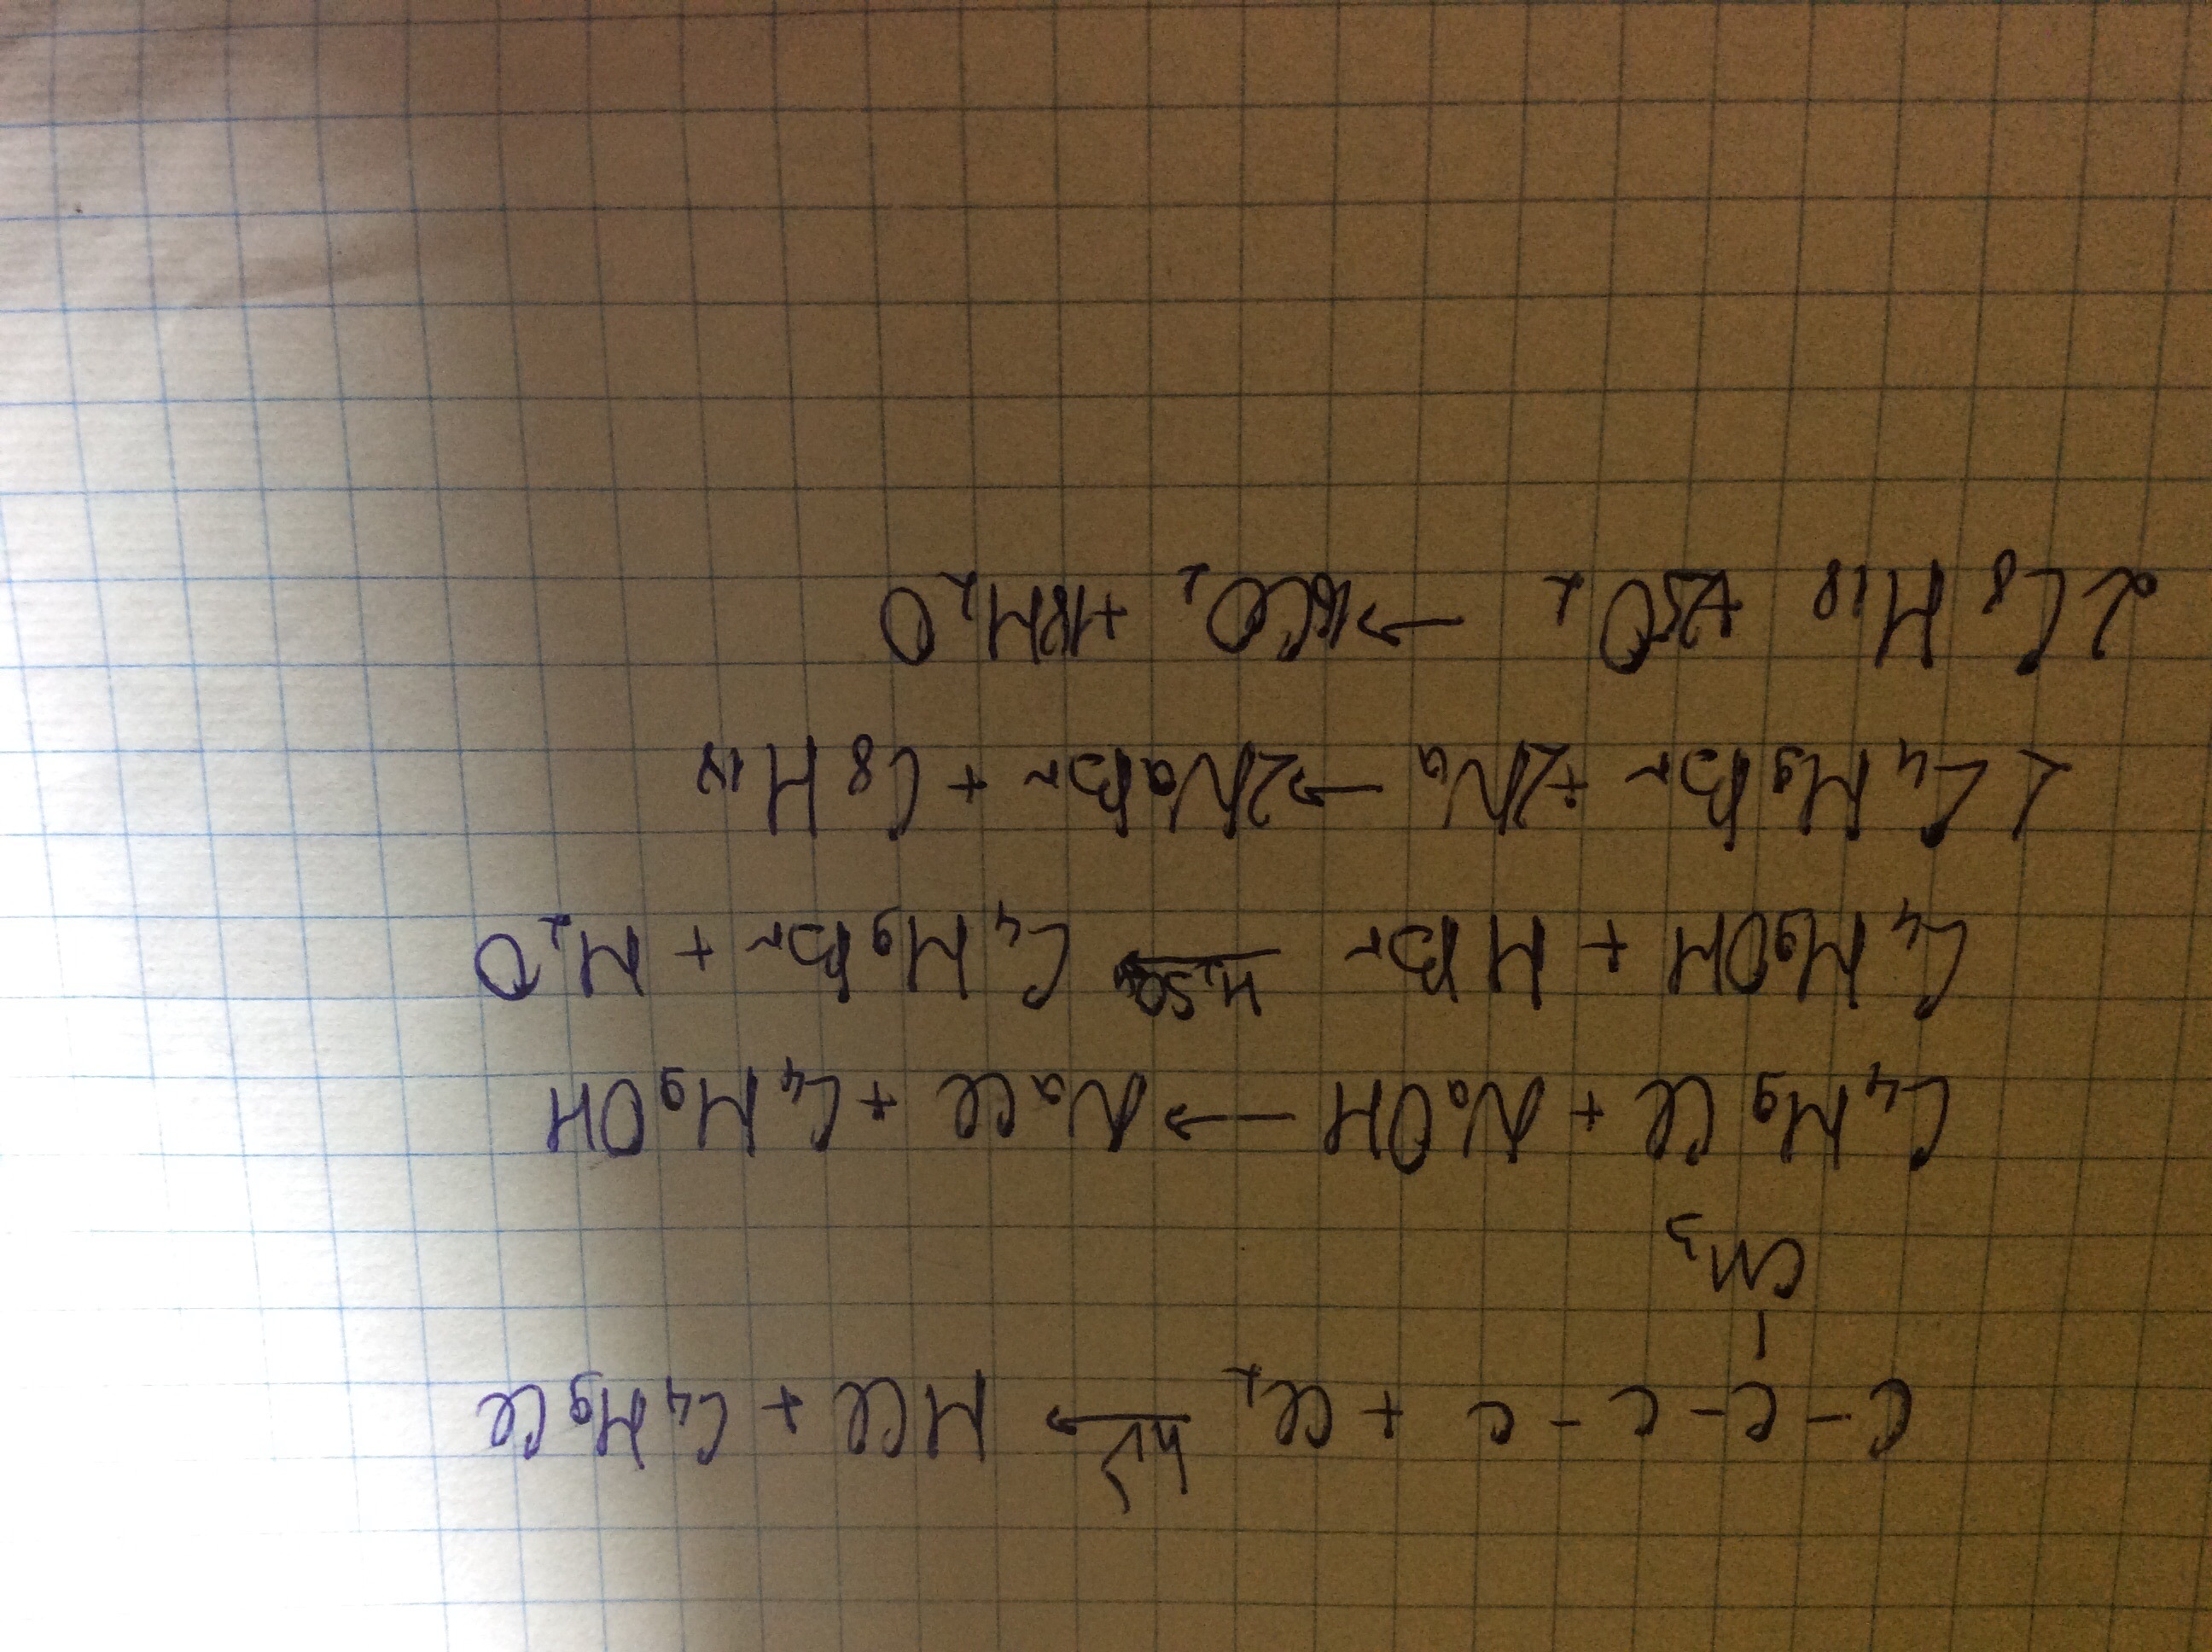 hν
C - C - C - C + Cl₂ → HCl + C₄H₉Cl
|
CH₃
C₄H₉Cl + NaOH → NaCl + C₄H₉OH
H₂SO₄
C₄H₉OH + HBr → C₄H₉Br + H₂O
2C₄H₉Br + 2Na → 2NaBr + C₈H₁₈
2C₈H₁₈ + 25O₂ → 16CO₂ + 18H₂O